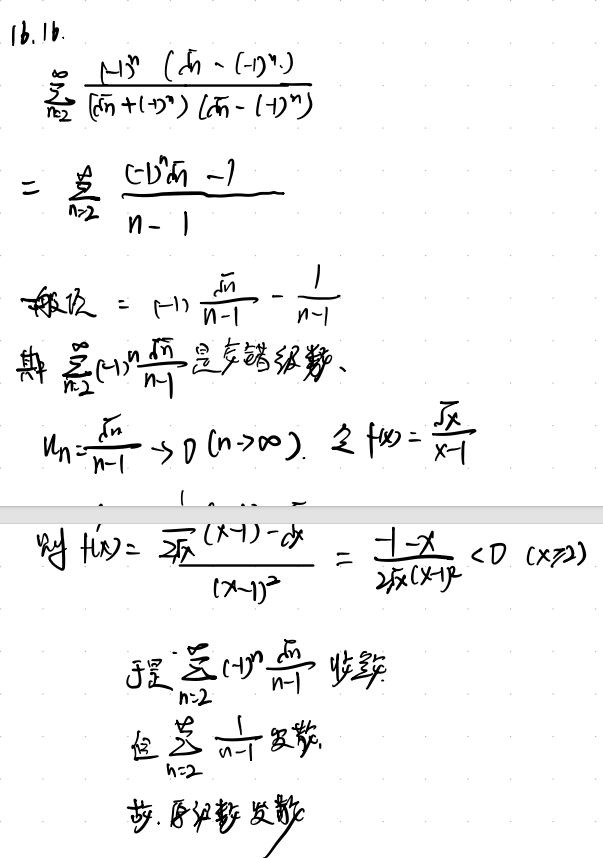 16.16.
∞ ∑ n=2 (-1)ⁿ (√n - (-1)ⁿ.) / (√n+(-1)ⁿ)(√n - (-1)ⁿ)
= ∞ ∑ n=2 (-1)ⁿ√n - 1 / n - 1
一般项 = (-1) √n / n-1 - 1 / n-1
其中 ∞ ∑ n=2 (-1)ⁿ √n / n-1 是交错级数、
uₙ = √n / n-1 → 0 (n→∞). 令 f(x) = √x / x-1
则 f'(x) = 1 / 2√x (x-1) - √x / (x-1)² = -1-x / 2√x(x-1)² < 0 (x≥2)
于是 ∞ ∑ n=2 (-1)ⁿ √n / n-1 收敛
但 ∞ ∑ n=2 1 / n-1 发散.
故. 原级数发散